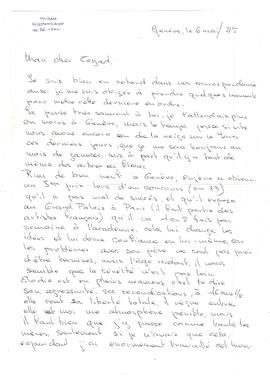 Genève, le 6 mai / 85
Mon cher
Je suis bien en retard dans ma correspondance
aussi je me suis obligée à prendre quelques moments
pour mettre cette dernière en ordre.
Je pense très souvent à toi, je t'attendais plus
ou moins à Genève, mais le temps passe si vite
nous avons encore eu de la neige sur le Jura
ces derniers jours que je me sens toujours au
mois de janvier, mis à part qu'il y a tout de
même des arbres en fleurs
Rien de bien neuf à Genève, Eugène a obtenu
un prix lors d'un concours
qu'il a pas mal de succès, et qu'il expose
au Grand Palais à Paris (il fait partie des
artistes français) qu'il va 1 ou 2 fois par
semaine à l'académie, cela lui change les
idées et lui donne confiance en lui-même, car
les problèmes avec son père ne sont pas près
d'être terminés, mais l'âge aidant, il nous
semble que la sérénité n'est pas loin
Elodie est en pleine
son agressivité, ses revendications,
elle veut sa liberté totale, il règne entre
elle et moi une atmosphère pénible, mais
il faut bien que j'y passe comme toutes les
mères, seulement si je n'avais que cela,
cependant j'ai énormément travaillé cet hiver